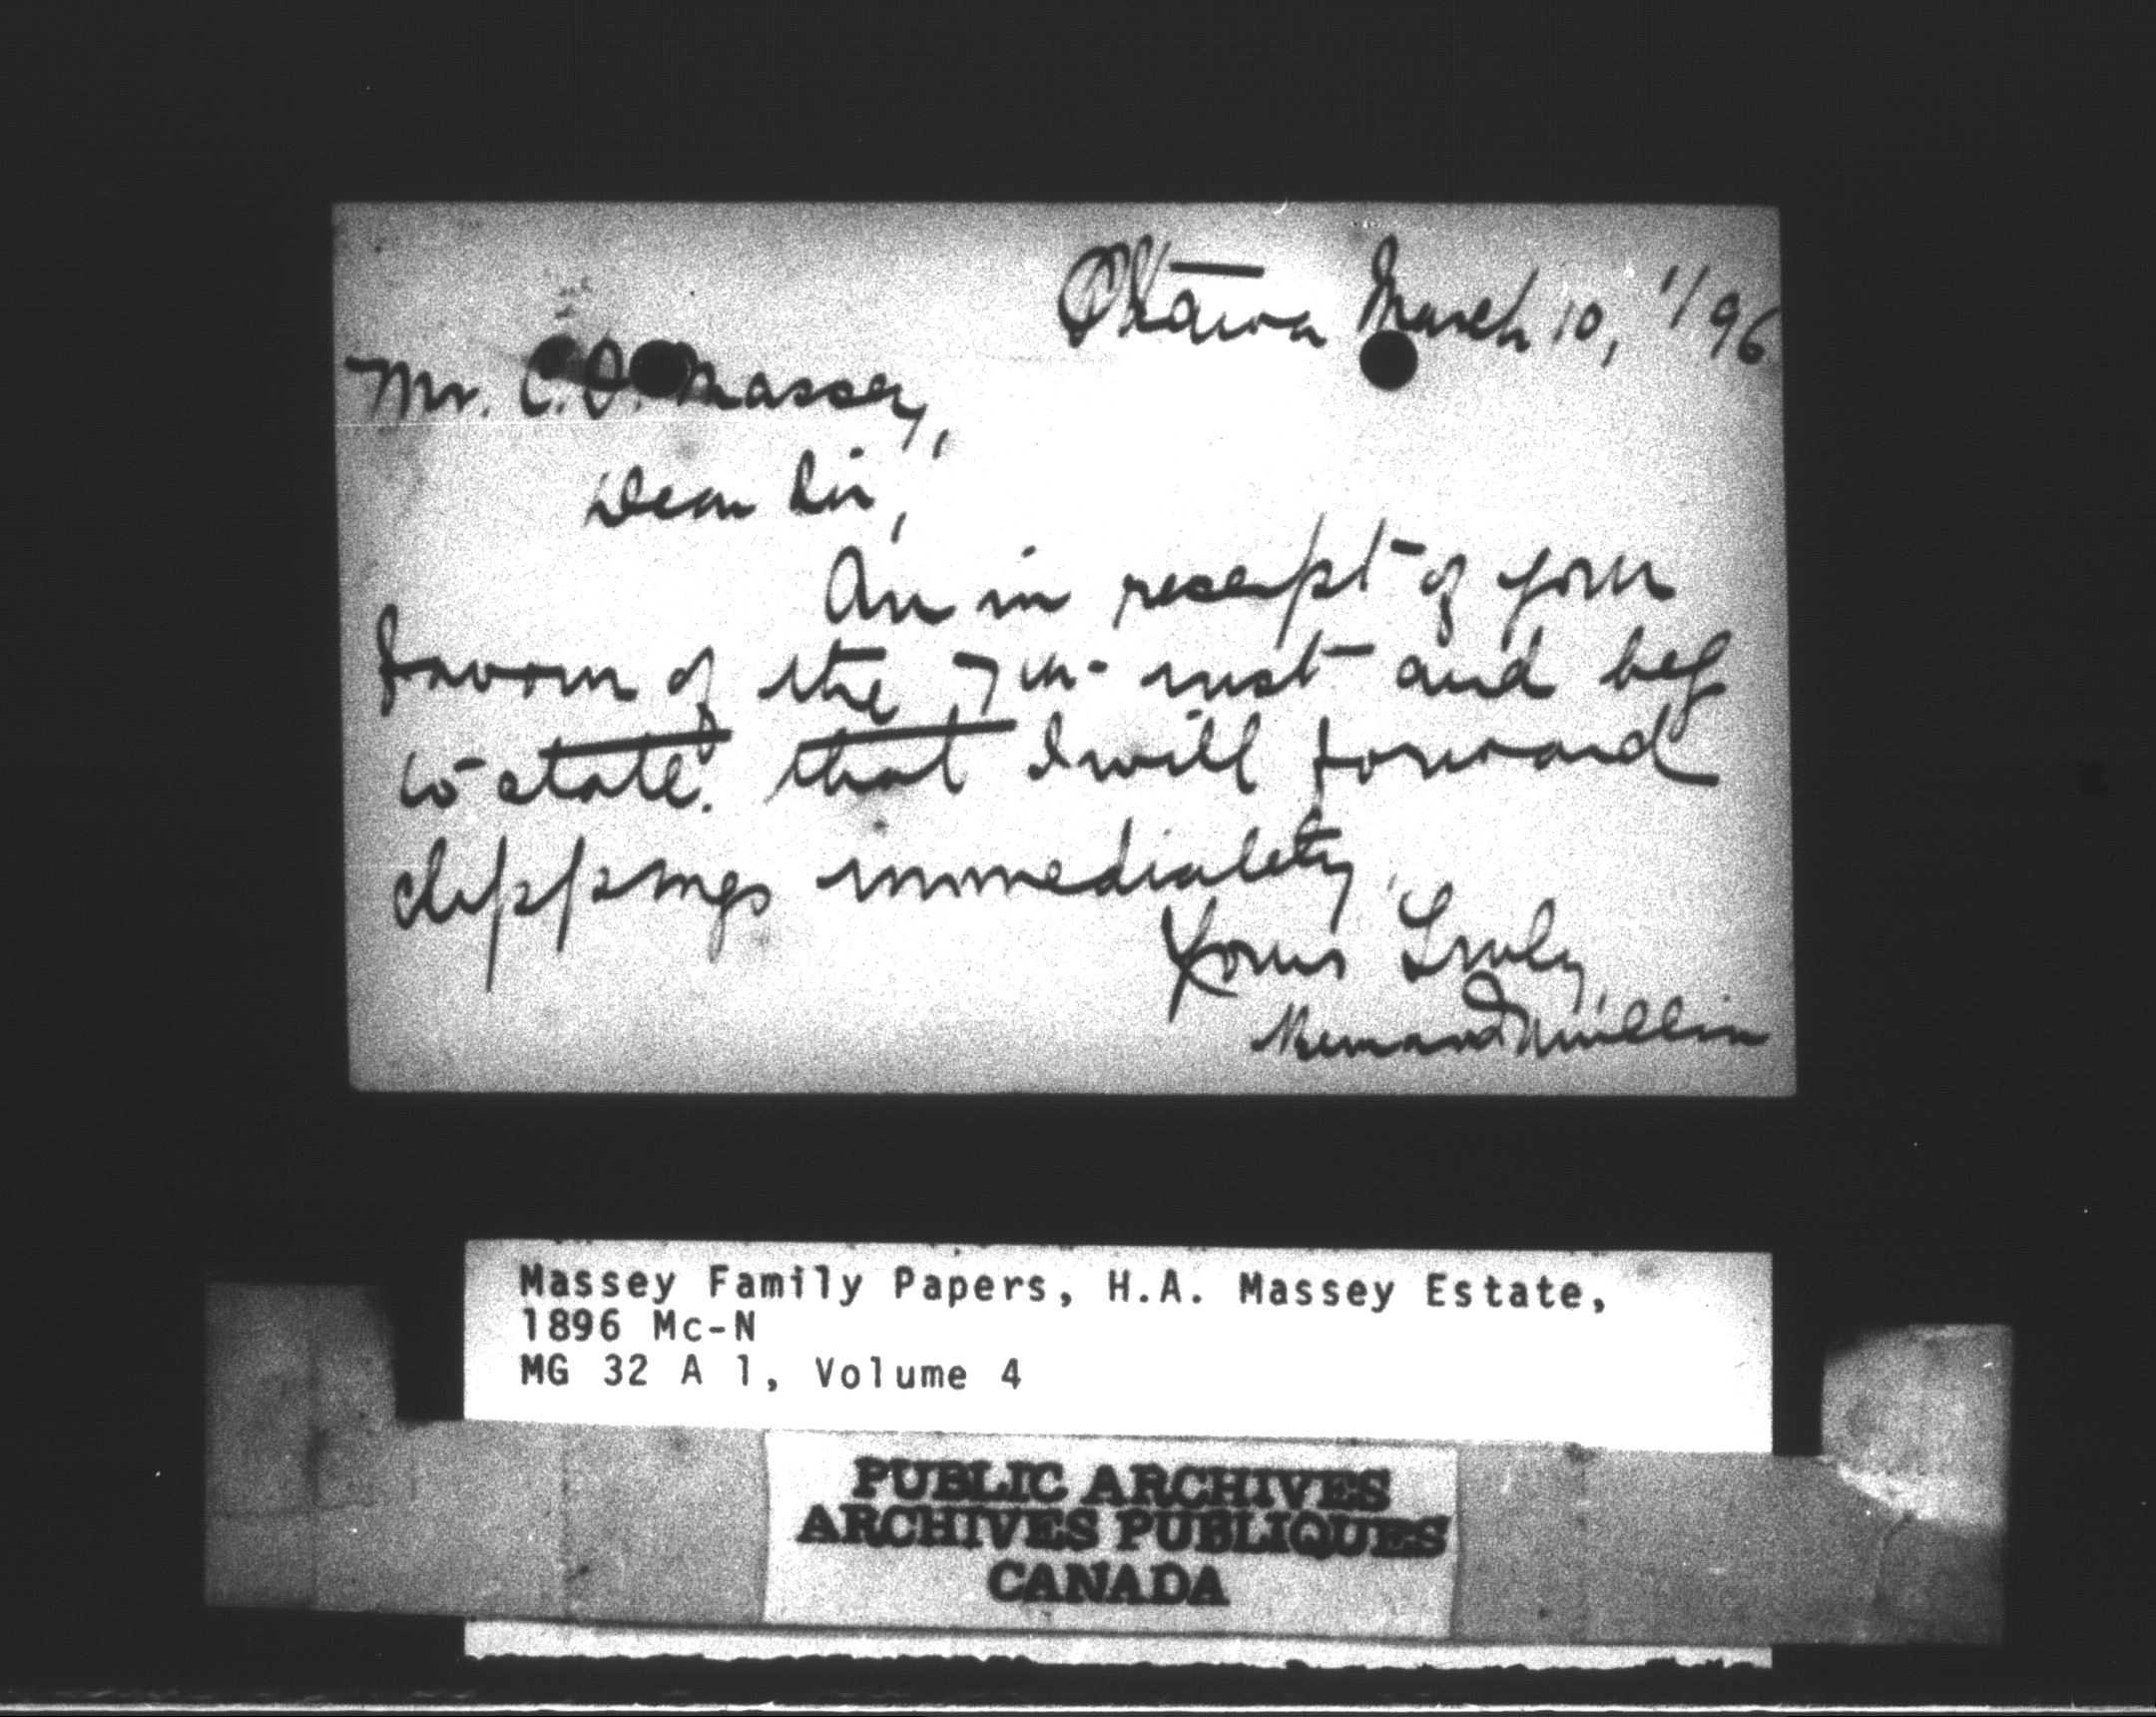 Ottawa March 10, '/96
Mr. C. D. Massey,
Dear Sir,
Am in receipt of your
favour of the 7th inst and beg
to state that I will forward
clippings immediately.
Yours Truly,
Mullin
Massey Family Papers, H.A. Massey Estate,
1896 Mc-N
MG 32 A 1, Volume 4
PUBLIC ARCHIVES
ARCHIVES PUBLIQUES
CANADA